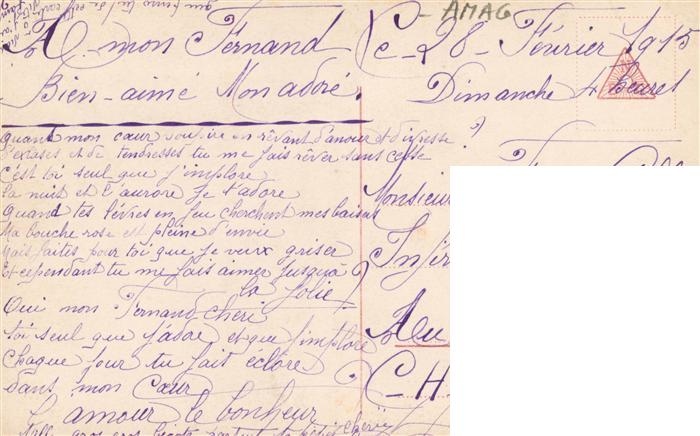 AMAG
A mon Fernand
Bien-aimé Mon adoré.
Ce 28 Février 1915
Dimanche 4 heures
Quand mon cœur soupire en rêvant d'amour et d'ivresse
d'extases et de tendresses tu me fais rêver sans cesse
c'est toi seul que j'implore
la nuit et l'aurore je t'adore
Quand tes lèvres en feu cherchent mes baisers
Ma bouche rose est pleine d'envie
Mais faites pour toi que je veux griser
Et cependant tu me fais aimer jusqua
la folie
Oui mon Fernand chéri
toi seul que j'adore et que j'implore
chaque jour tu fait eclore
Dans mon Cœur
L'amour le bonheur
Mille gros gros
Monsieur
Infir
Au
CH